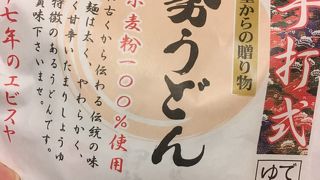 手打式
ゆで
からの贈り物
勢うどん
小麦粉一〇〇％使用
古くから伝わる伝統の味
麺は太く、やわらかく、
く甘辛いたまりしょうゆ
特徴のあるうどんです。
賞味下さいませ。
七年のエビスヤ